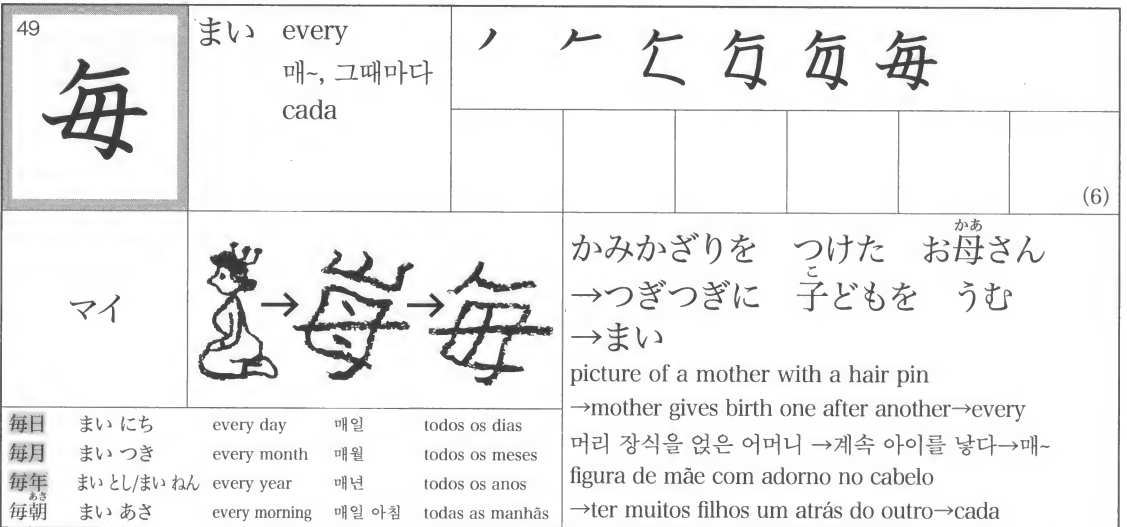 49
毎
まい every
매~, 그때마다
cada
(6)
マイ
かみかざりを つけた お母さん
かあ
→つぎつぎに 子どもを うむ
こ
→まい
picture of a mother with a hair pin
→mother gives birth one after another→every
머리 장식을 얹은 어머니 →계속 아이를 낳다→매~
figura de mãe com adorno no cabelo
→ter muitos filhos um atrás do outro→cada
毎日 まい にち every day 매일 todos os dias
毎月 まい つき every month 매월 todos os meses
毎年 まい とし/まい ねん every year 매년 todos os anos
あさ
毎朝 まい あさ every morning 매일 아침 todas as manhãs